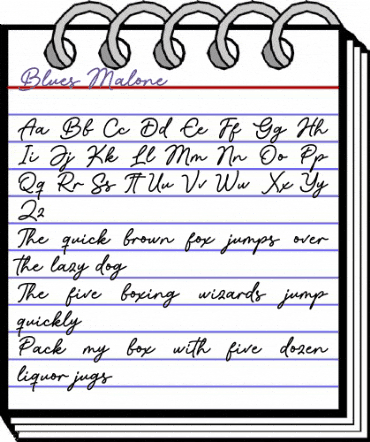 Blues Malone
Aa Bb Cc Dd Ee Ff Gg Hh
Ii Jj Kk Ll Mm Nn Oo Pp
Qq Rr Ss Tt Uu Vv Ww Xx Yy
Zz
The quick brown fox jumps over
the lazy dog
The five boxing wizards jump
quickly
Pack my box with five dozen
liquor jugs